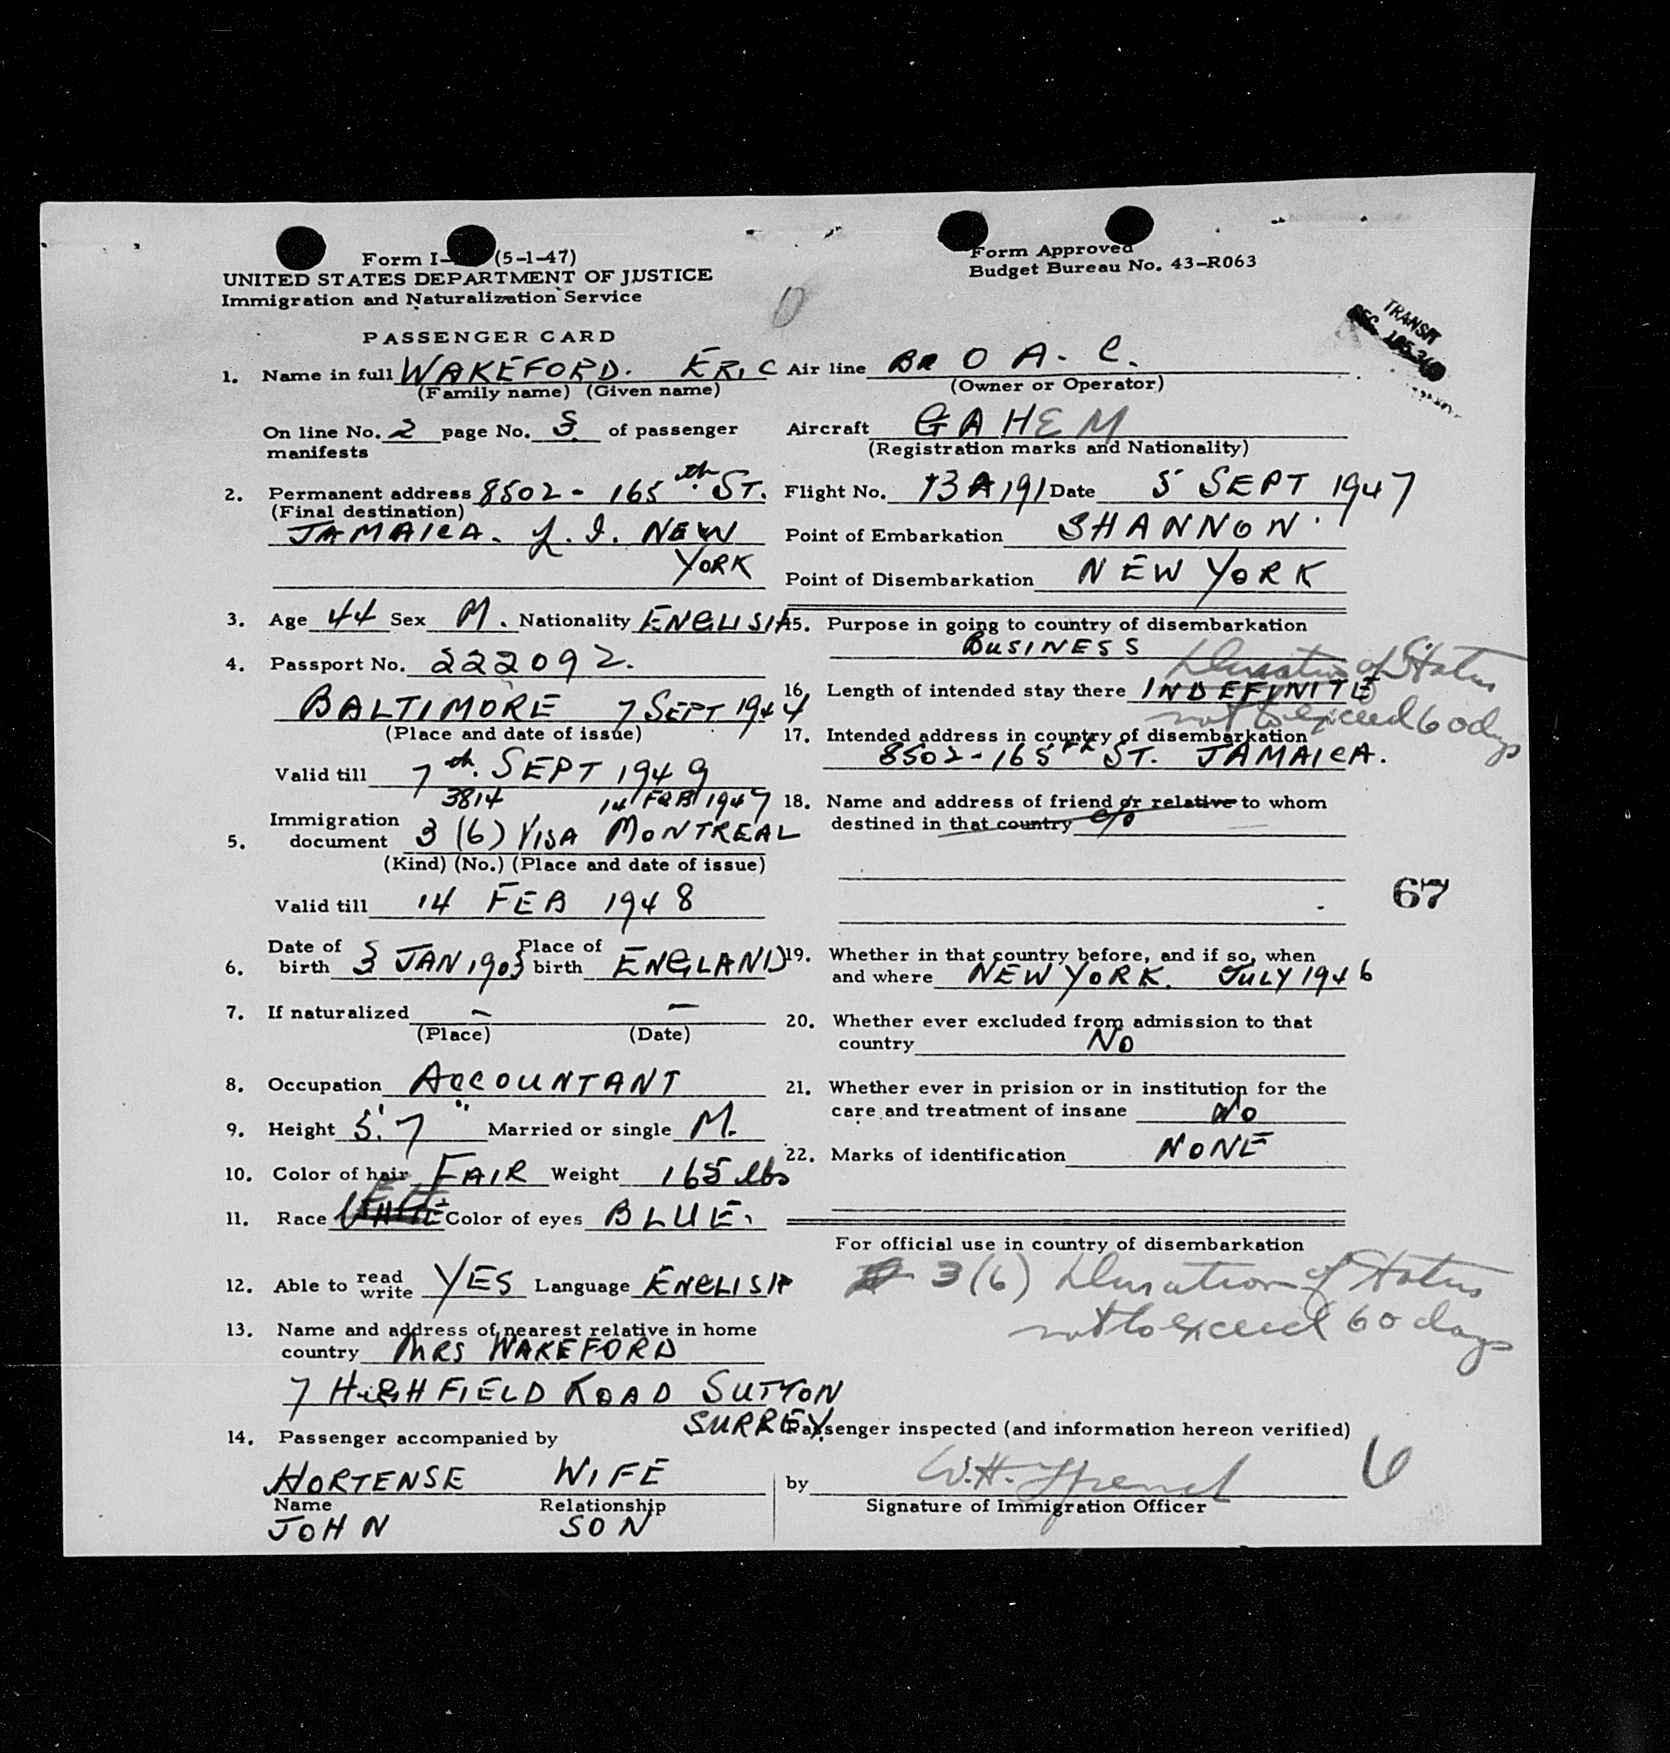 Form I- (5-1-47)
UNITED STATES DEPARTMENT OF JUSTICE
Immigration and Naturalization Service
PASSENGER CARD
1. Name in full WAKEFORD. ERIC
(Family name) (Given name)
On line No. 2 page No. 3 of passenger
manifests
2. Permanent address 8502 - 165th ST.
(Final destination)
JAMAICA. L. I. NEW
YORK
3. Age 44 Sex M. Nationality ENGLISH
4. Passport No. 222092.
BALTIMORE 7 SEPT 1944
(Place and date of issue)
Valid till 7th. SEPT 1949
3814 14 FEB 1947
Immigration
5. document 3 (6) VISA MONTREAL
(Kind) (No.) (Place and date of issue)
Valid till 14 FEB 1948
Date of Place of
6. birth 3 JAN 1903 birth ENGLAND
7. If naturalized — —
(Place) (Date)
8. Occupation ACCOUNTANT
9. Height 5' 7" Married or single M.
10. Color of hair FAIR Weight 165 lbs
11. Race WHITE Color of eyes BLUE.
12. Able to read write YES Language ENGLISH
13. Name and address of nearest relative in home
country MRS WAKEFORD
7 HIGHFIELD ROAD SUTTON
SURREY
14. Passenger accompanied by
HORTENSE WIFE
Name Relationship
JOHN SON
Form Approved
Budget Bureau No. 43-R063
TRANSIT
SEC.
Air line BR O A. C.
(Owner or Operator)
Aircraft GAHEM
(Registration marks and Nationality)
Flight No. 13A191 Date 5 SEPT 1947
Point of Embarkation SHANNON
Point of Disembarkation NEW YORK
15. Purpose in going to country of disembarkation
BUSINESS
Duration of Status
16. Length of intended stay there INDEFINITE
not to exceed 60 days
17. Intended address in country of disembarkation
8502 - 165th ST. JAMAICA.
18. Name and address of friend or relative to whom
destined in that country c/o
67
19. Whether in that country before, and if so, when
and where NEW YORK. JULY 1946
20. Whether ever excluded from admission to that
country NO
21. Whether ever in prision or in institution for the
care and treatment of insane NO
22. Marks of identification NONE
For official use in country of disembarkation
3 (6) Duration of Status
not to exceed 60 days
Passenger inspected (and information hereon verified)
by W.H.
Signature of Immigration Officer